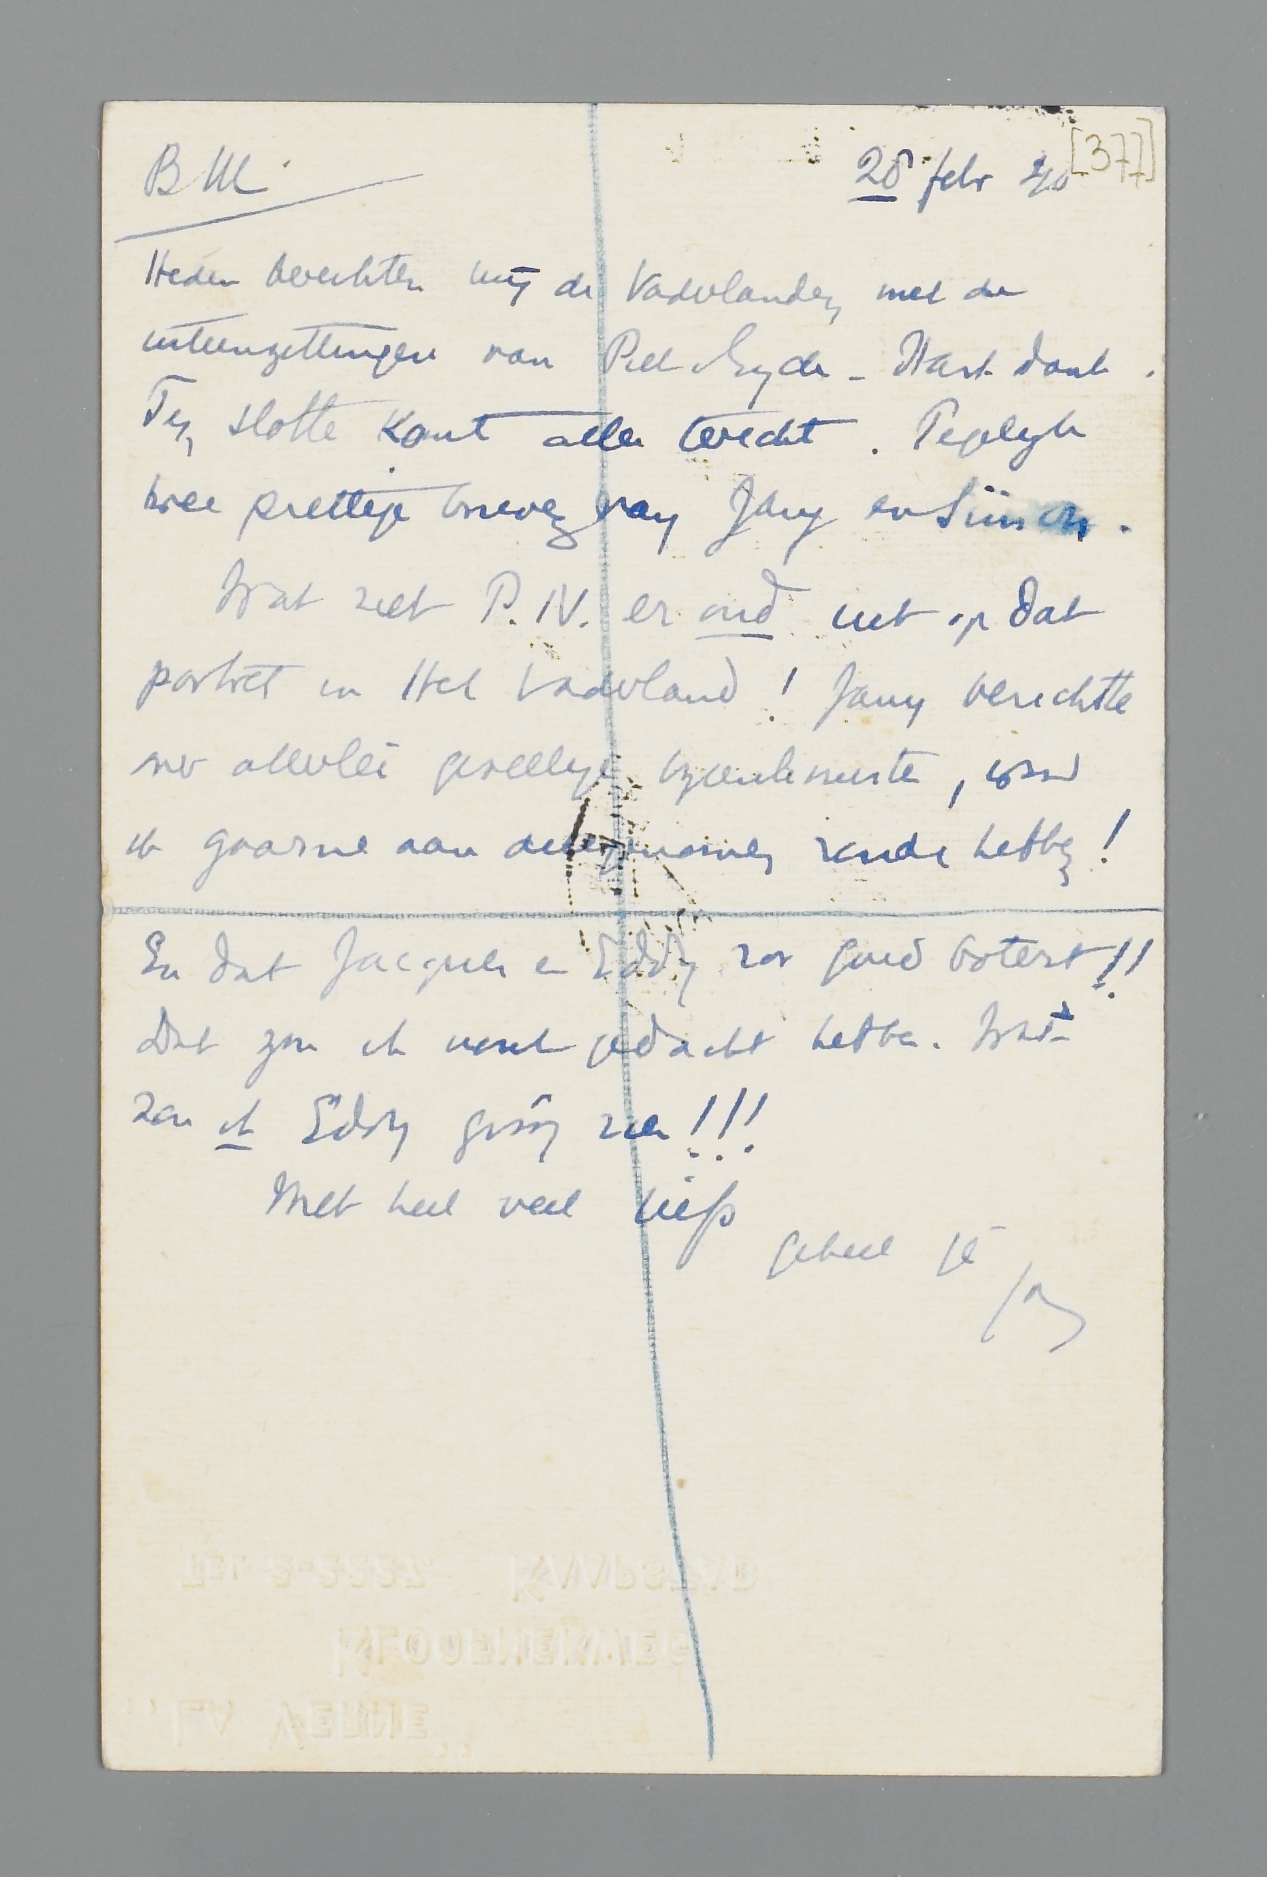 [377]
B M.
28 febr 40
Heden bereikten mij de Vaderlanden met de
uiteenzettingen van Piet . Hart. dank.
Ten slotte komt alles terecht. Tegelijk
twee prettige brieven van Jany en Simon.
Wat ziet P.N. er oud uit op dat
portret in Het Vaderland! Jany berichtte
over allerlei gezellige bijeenkomsten, waar
ik gaarne aan deelgenomen zoude hebben!
En dat Jacques en Eddy zoo goed botert!!
Dat zou ik nooit gedacht hebben. Wat
zou ik Eddy graag zien!!!
Met heel veel liefs
geheel je
Jan
TEL 2-2557 KAAPSTAD
KLOOFNEKWEG
"LA VERNE"